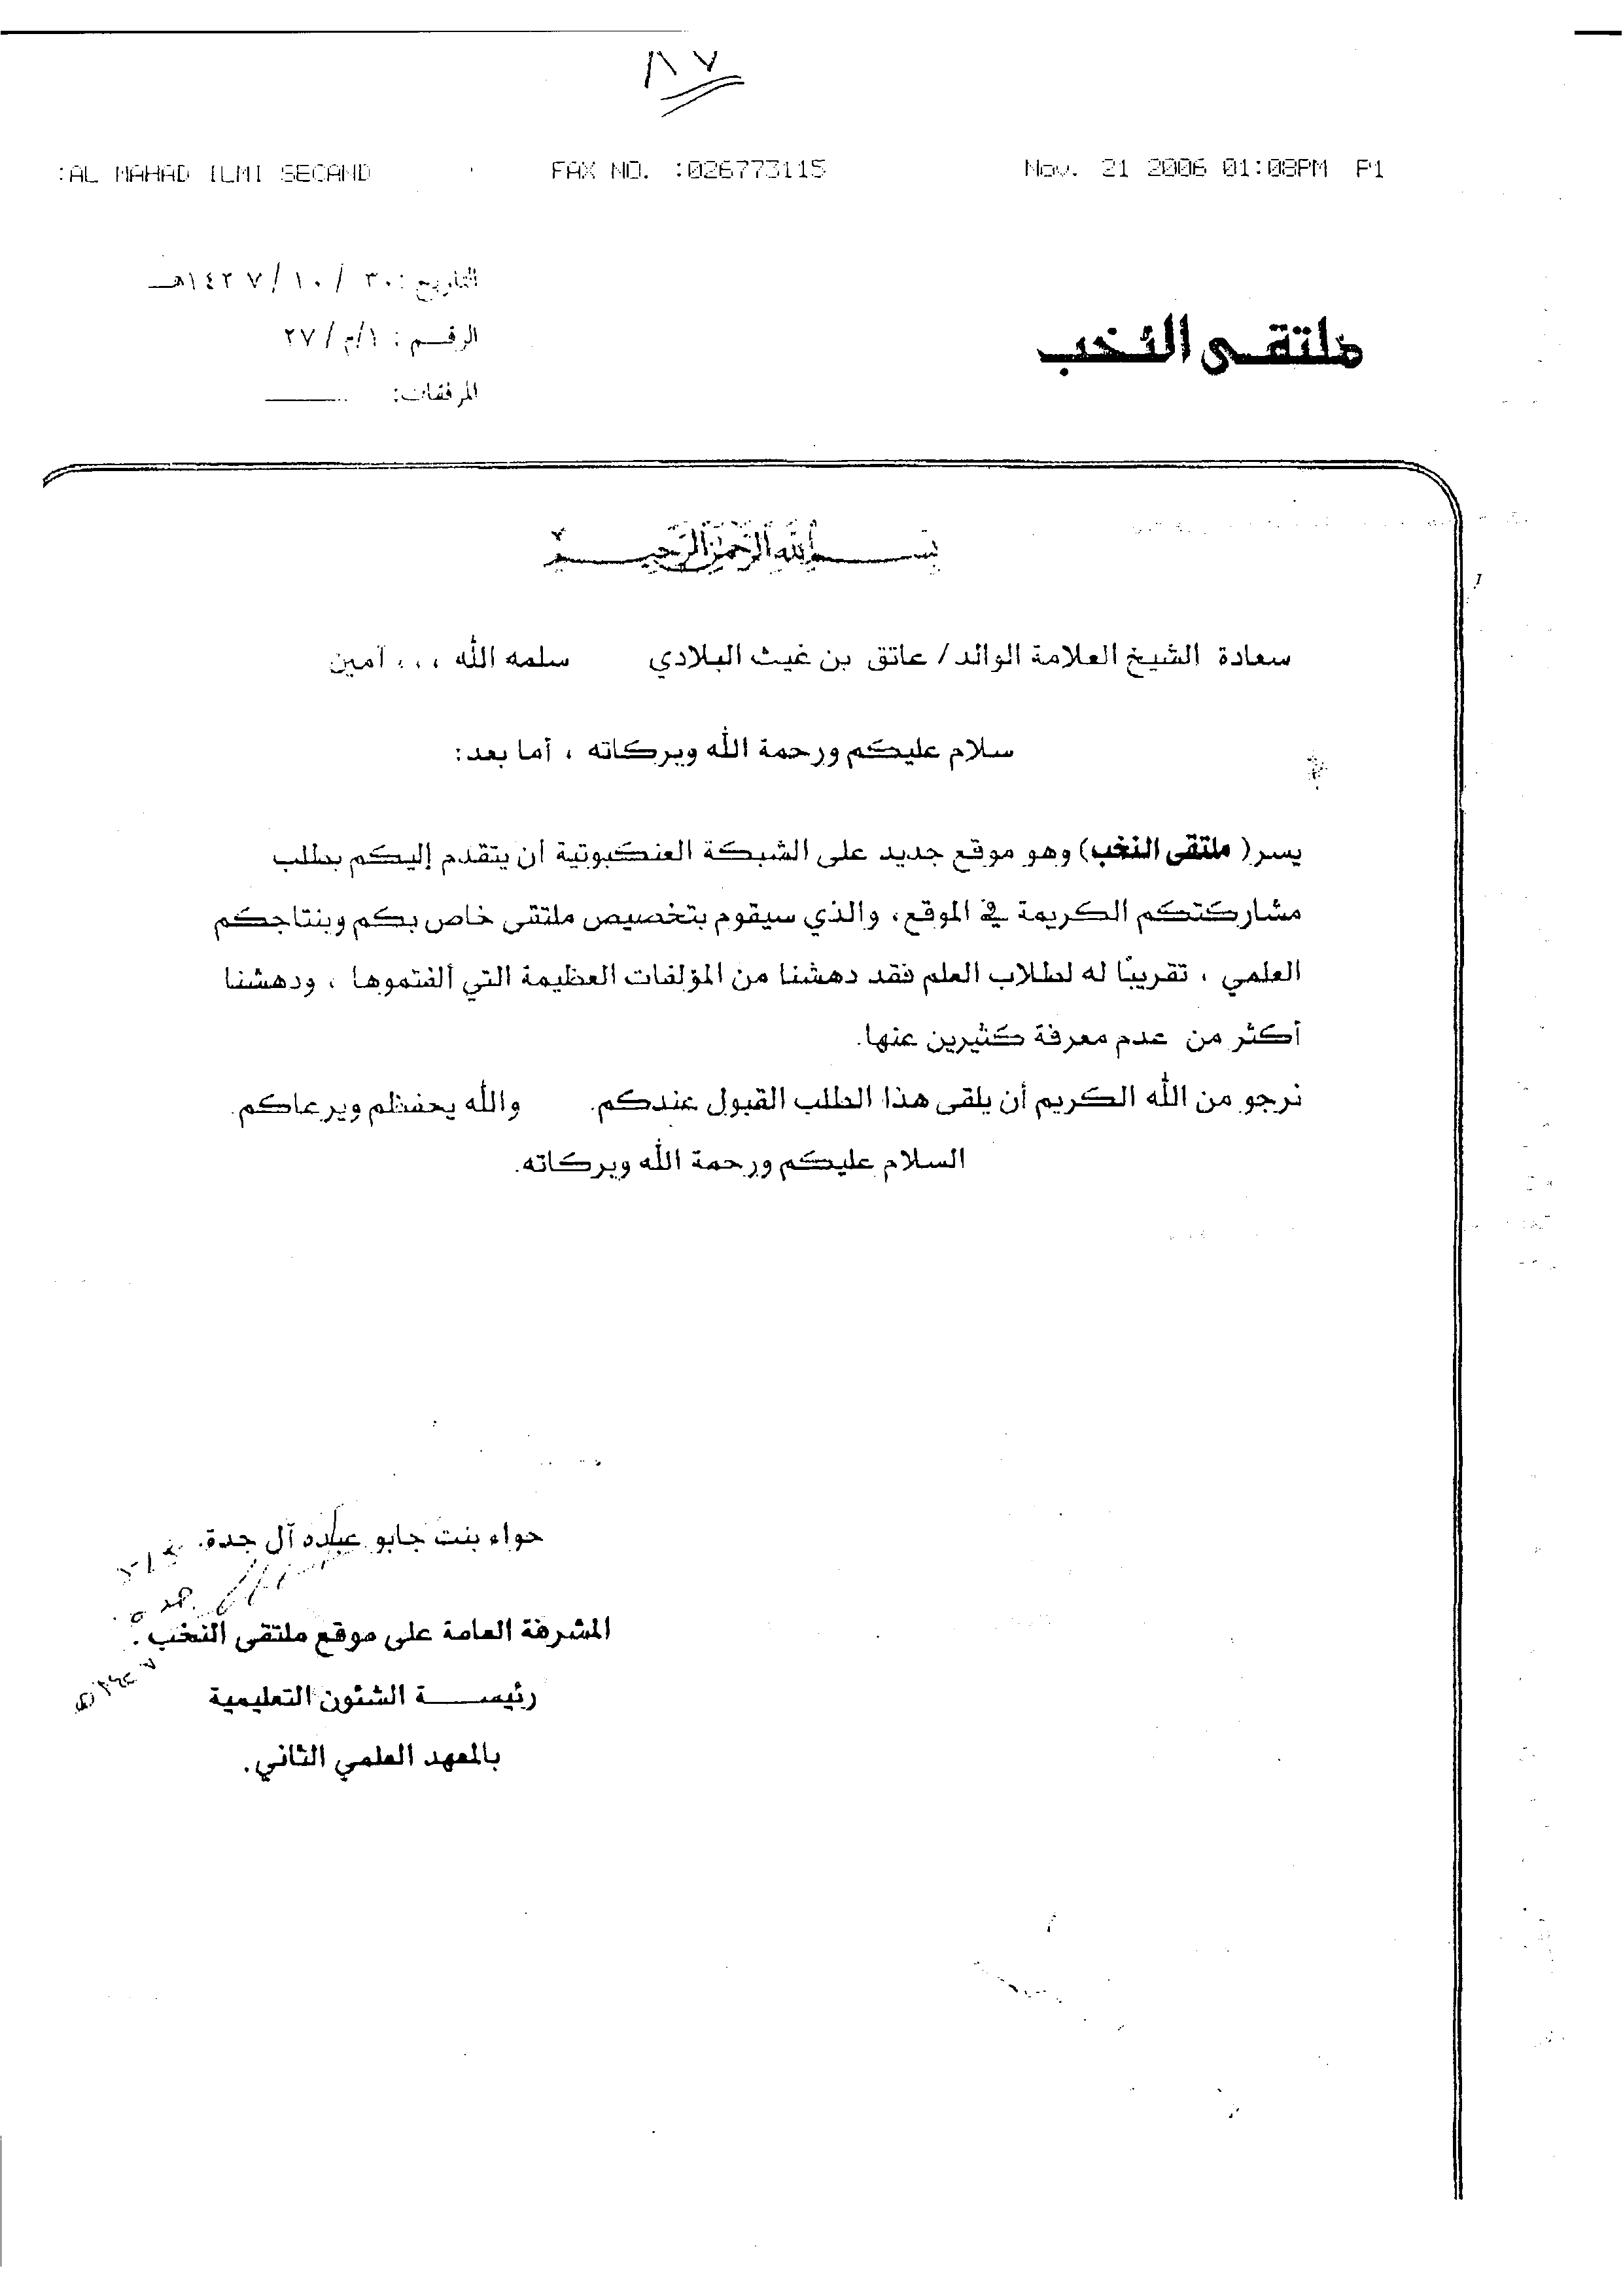 ٨٧
:AL MAHAD ILMI SECAND FAX NO. :026773115 Nov. 21 2006 01:08PM P1
التاريخ : ٣٠ / ١٠ / ١٤٢٧هـ
الرقم : ١/م/ ٢٧
المرفقات:
ملتقى النخب
بسم الله الرحمن الرحيم
سعادة الشيخ العلامة الوالد/ عاتق بن غيث البلادي سلمه الله ،،، آمين
سلام عليكم ورحمة الله وبركاته ، أما بعد:
يسر( ملتقى النخب) وهو موقع جديد على الشبكة العنكبوتية أن يتقدم إليكم بطلب
مشاركتكم الكريمة في الموقع، والذي سيقوم بتخصيص ملتقى خاص بكم وبنتاجكم
العلمي ، تقريبًا له لطلاب العلم فقد دهشنا من المؤلفات العظيمة التي ألفتموها ، ودهشنا
أكثر من عدم معرفة كثيرين عنها.
نرجو من الله الكريم أن يلقى هذا الطلب القبول عندكم. والله يحفظم ويرعاكم.
السلام عليكم ورحمة الله وبركاته.
حواء بنت جابو عبده آل جدة.
المشرفة العامة على موقع ملتقى النخب .
رئيسة الشئون التعليمية
بالمعهد العلمي الثاني.